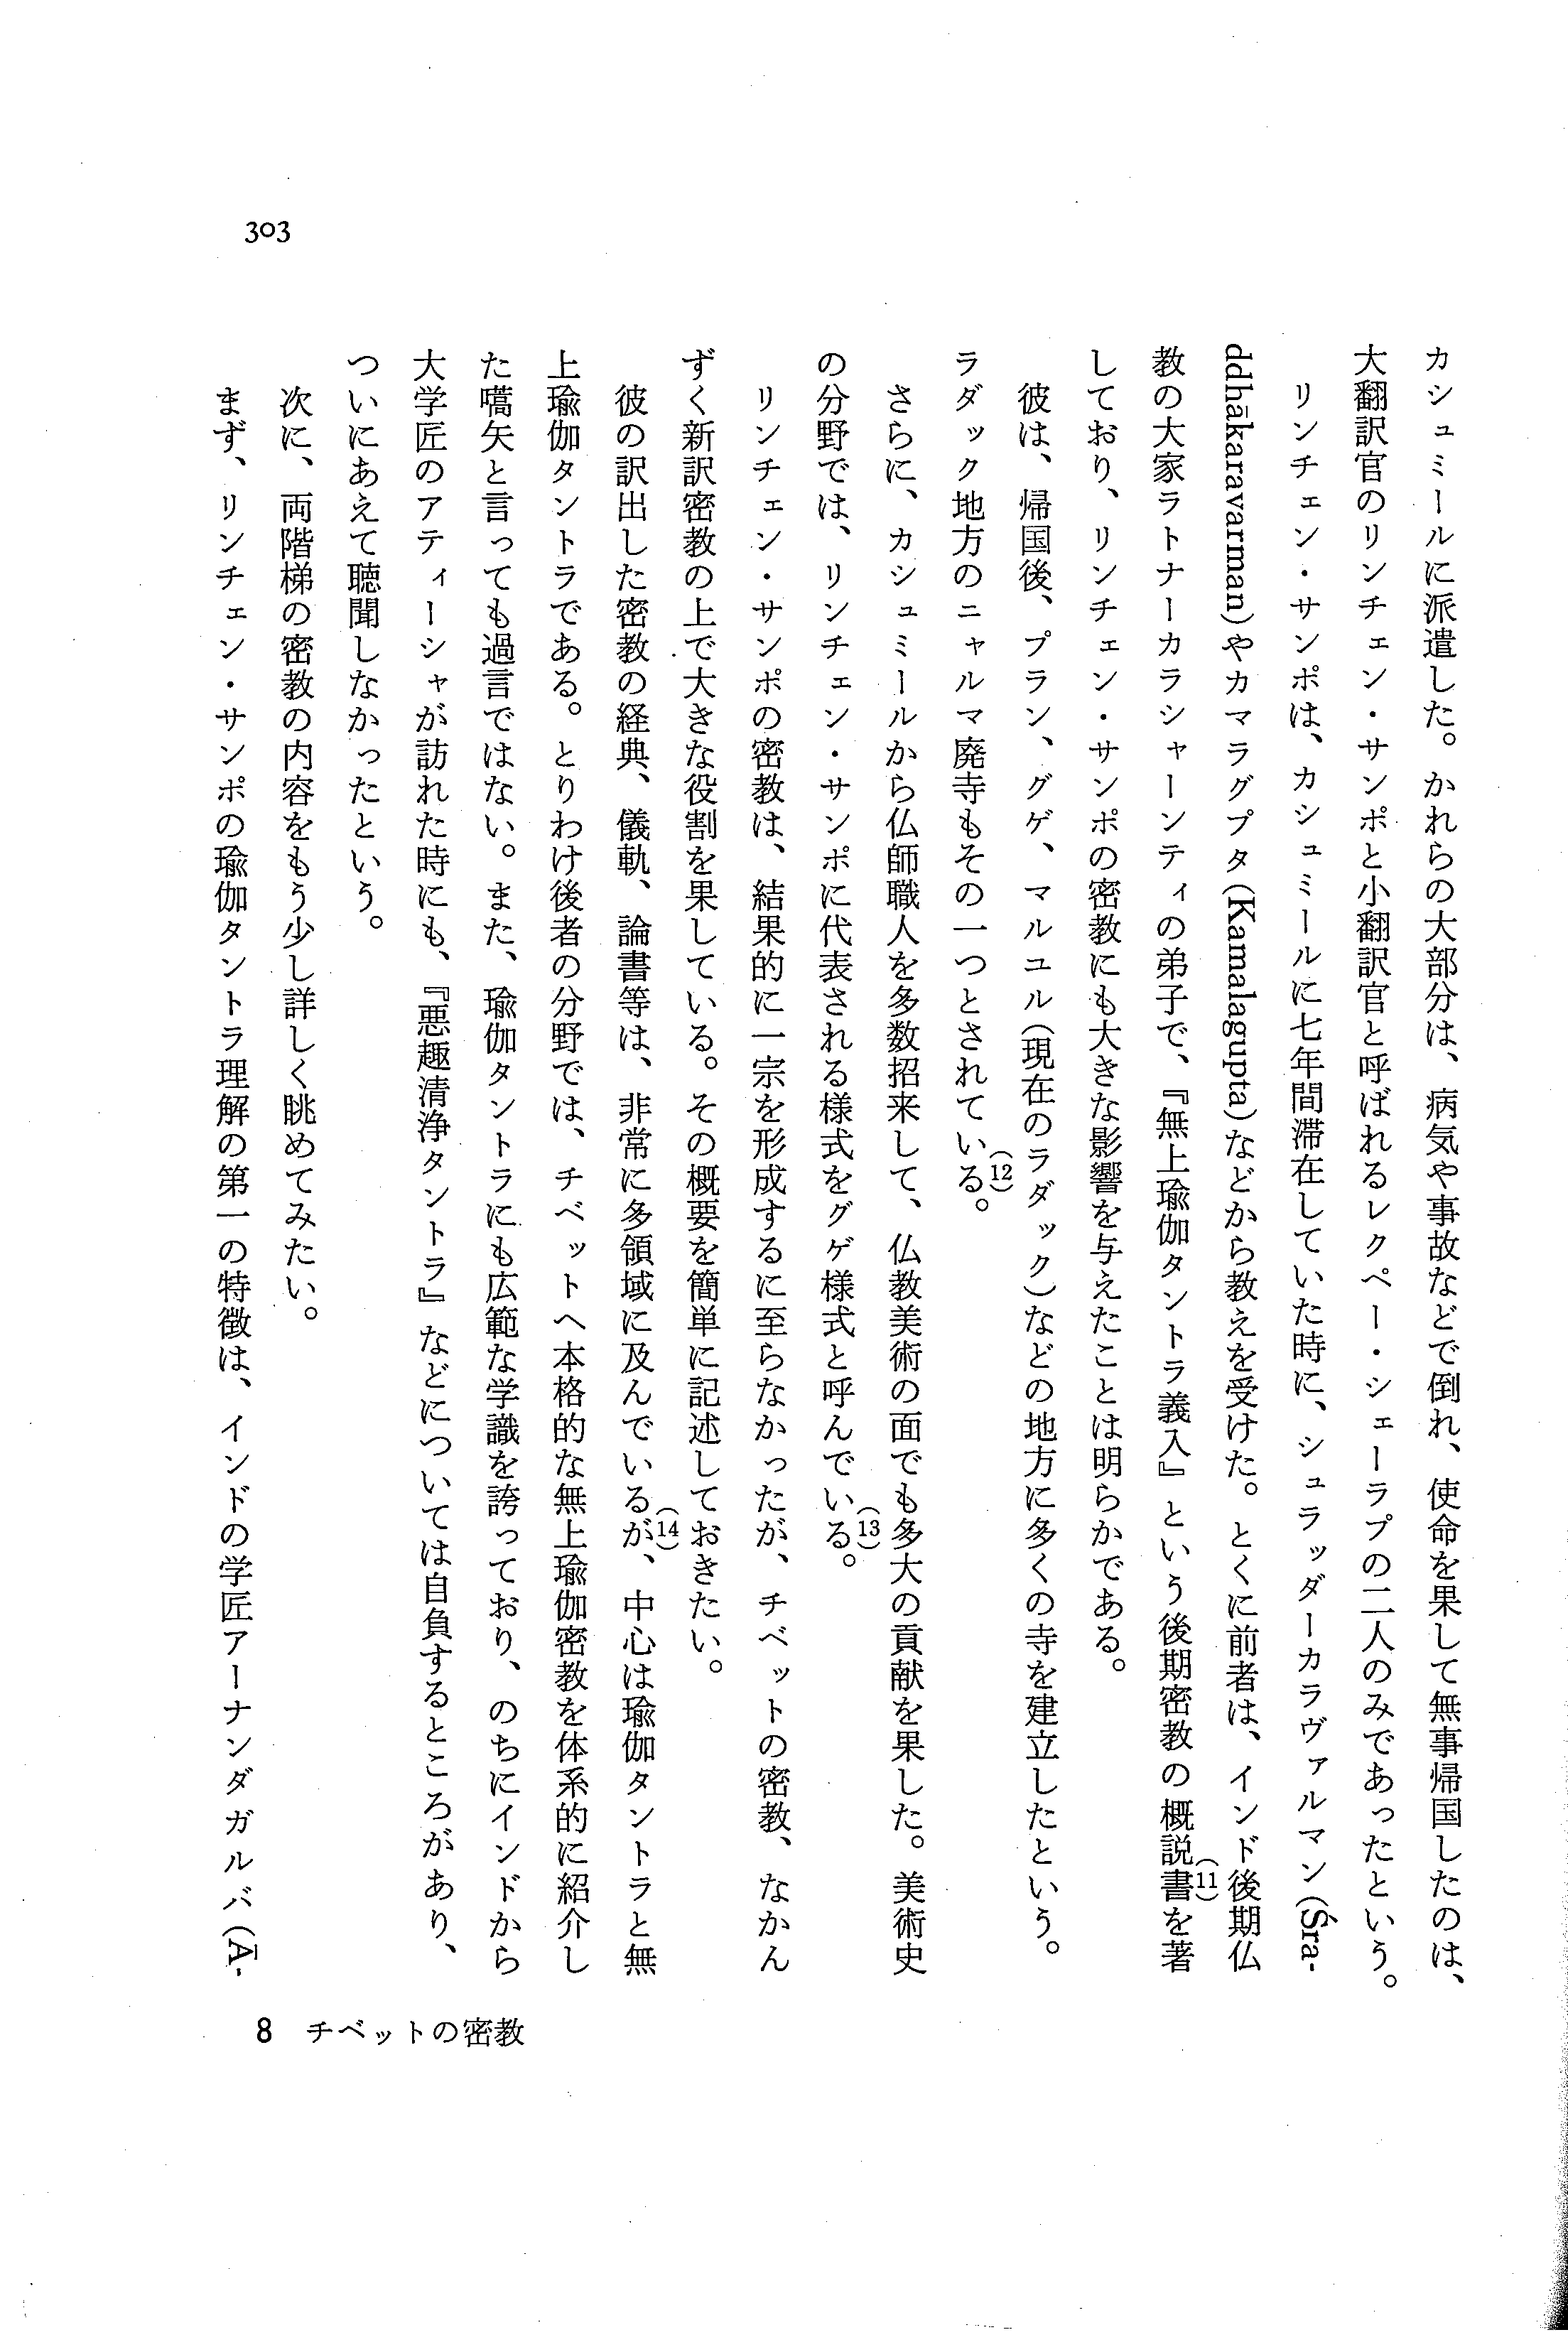 カシュミールに派遣した。かれらの大部分は、病気や事故などで倒れ、使命を果して無事帰国したのは、
大翻訳官のリンチェン・サンポと小翻訳官と呼ばれるレクペー・シェーラプの二人のみであったという。
リンチェン・サンポは、カシュミールに七年間滞在していた時に、シュラッダーカラヴァルマン(Śra-
ddhākaravarman)やカマラグプタ(Kamalagupta)などから教えを受けた。とくに前者は、インド後期仏
教の大家ラトナーカラシャーンティの弟子で、『無上瑜伽タントラ義入』という後期密教の概説書(11)を著
しており、リンチェン・サンポの密教にも大きな影響を与えたことは明らかである。
彼は、帰国後、プラン、グゲ、マルユル(現在のラダック)などの地方に多くの寺を建立したという。
ラダック地方のニャルマ廃寺もその一つとされている(12)。
さらに、カシュミールから仏師職人を多数招来して、仏教美術の面でも多大の貢献を果した。美術史
の分野では、リンチェン・サンポに代表される様式をグゲ様式と呼んでいる(13)。
リンチェン・サンポの密教は、結果的に一宗を形成するに至らなかったが、チベットの密教、なかん
ずく新訳密教の上で大きな役割を果している。その概要を簡単に記述しておきたい。
彼の訳出した密教の経典、儀軌、論書等は、非常に多領域に及んでいるが(14)、中心は瑜伽タントラと無
上瑜伽タントラである。とりわけ後者の分野では、チベットへ本格的な無上瑜伽密教を体系的に紹介し
た嚆矢と言っても過言ではない。また、瑜伽タントラにも広範な学識を誇っており、のちにインドから
大学匠のアティーシャが訪れた時にも、『悪趣清浄タントラ』などについては自負するところがあり、
ついにあえて聴聞しなかったという。
次に、両階梯の密教の内容をもう少し詳しく眺めてみたい。
まず、リンチェン・サンポの瑜伽タントラ理解の第一の特徴は、インドの学匠アーナンダガルバ(Ā-
303
8 チベットの密教